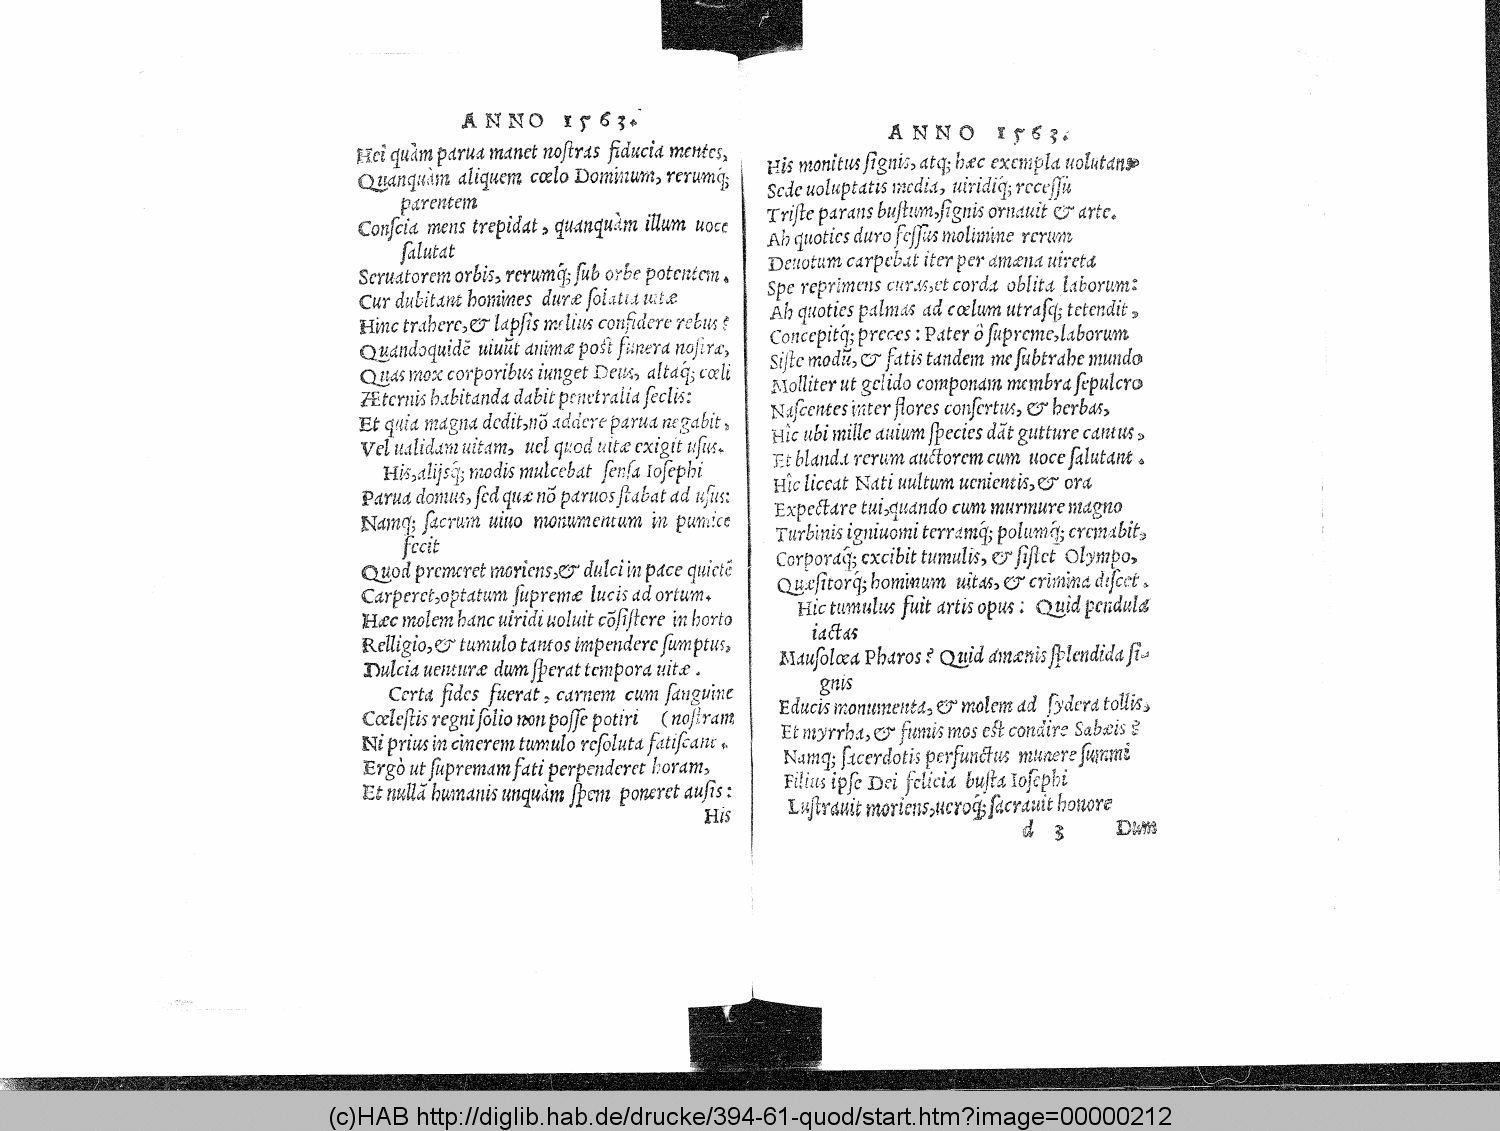 ANNO 1563.
Hei quàm parua manet noſtras fiducia mentes,
Quanquàm aliquem cœlo Dominum, rerumq́;
parentem
Conſcia mens trepidat, quanquàm illum uoce
ſalutat
Seruatorem orbis, rerumq́; ſub orbe potentem.
Cur dubitant homines duræ ſolatia uitæ
Hinc trahere, & lapſis melius confidere rebus?
Quandoquidẽ uiuũt animæ poſt funera noſtræ,
Quas mox corporibus iunget Deus, altaq́; cœli
Æternis habitanda dabit penetralia ſeclis:
Et quia magna dedit, nõ addere parua negabit,
Vel ualidam uitam, uel quod uitæ exigit uſus.
His, alijsq́; modis mulcebat ſenſa Ioſephi
Parua domus, ſed quæ nõ paruos ſtabat ad uſus:
Namq; ſacrum uiuo monumentum in pumice
fecit
Quod premeret moriens, & dulci in pace quietẽ
Carperet, optatum ſupremæ lucis ad ortum.
Hæc molem hanc uiridi uoluit cõſiſtere in horto
Relligio, & tumulo tantos impendere ſumptus,
Dulcia uenturæ dum ſperat tempora uitæ.
Certa fides fuerat, carnem cum ſanguine
Cœleſtis regni ſolio non poſſe potiri (noſtram
Ni prius in cinerem tumulo reſoluta fatiſcant.
Ergò ut ſupremam fati perpenderet horam,
Et nullã humanis unquàm ſpem poneret auſis:
His
ANNO 1563.
His monitus ſignis, atq; hæc exempla uolutans
Sede uoluptatis media, uiridiq́; receſſu
Triſte parans buſtum, ſignis ornauit & arte.
Ah quoties duro feſſus molimine rerum
Deuotum carpebat iter per amæna uireta
Spe reprimens curas, et corda oblita laborum:
Ah quoties palmas ad cœlum utraſq; tetendit,
Concepitq́; preces: Pater ô ſupreme, laborum
Siſte modũ, & fatis tandem me ſubtrahe mundo
Molliter ut gelido componam membra ſepulcro
Naſcentes inter flores conſertus, & herbas,
Hîc ubi mille auium ſpecies dãt gutture cantus,
Et blanda rerum auctorem cum uoce ſalutant.
Hîc liceat Nati uultum uenientis, & ora
Expectare tui, quando cum murmure magno
Turbinis igniuomi terramq́; polumq́; cremabit,
Corporaq́; excibit tumulis, & ſiſtet Olympo,
Quæſitorq́; hominum uitas, & crimina diſcet.
Hic tumulus fuit artis opus: Quid pendula
iactas
Mauſolœa Pharos? Quid amænis ſplendida ſi-
gnis
Educis monumenta, & molem ad ſydera tollis,
Et myrrha, & fumis mos eſt condire Sabæis?
Namq; ſacerdotis perfunctus munere ſummi
Filius ipſe Dei felicia buſta Ioſephi
Luſtrauit moriens, ueroq́; ſacrauit honore
d 3 Dum
(c)HAB http://diglib.hab.de/drucke/394-61-quod/start.htm?image=00000212